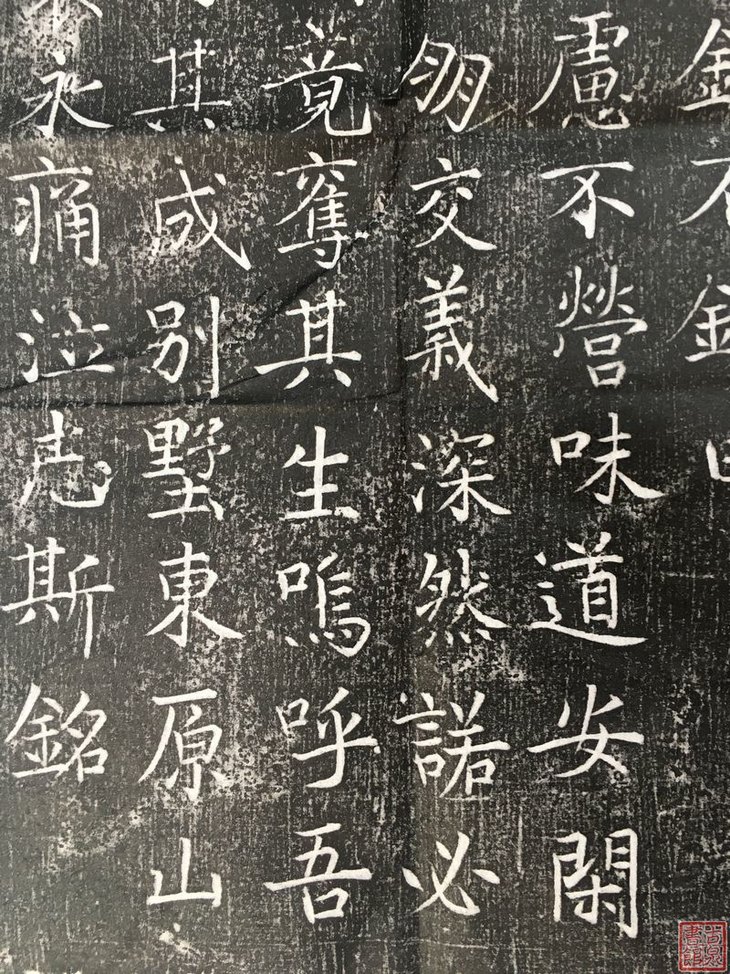 不
慮不營味道安閑
朋交義深然諾必
竟奪其生嗚呼吾
其成別墅東原山
永痛泣志斯銘